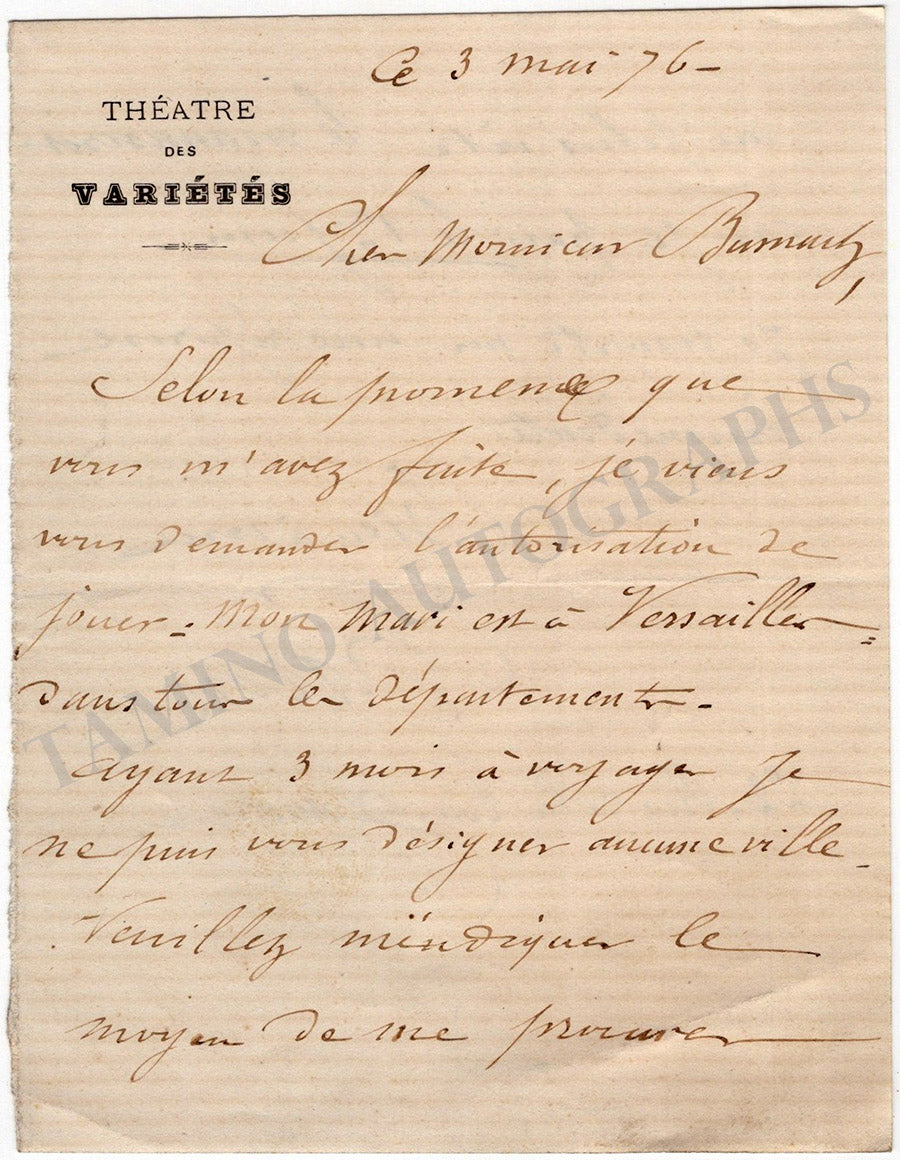 Ce 3 mai 76 -
THÉATRE
DES
VARIÉTÉS
Cher Monsieur
Selon la promesse que
vous m'avez faite, je viens
vous demander l'autorisation de
jouer - Mon Mari est à Versailles =
dans tous les départements -
ayant 3 mois à voyager je
ne puis vous désigner aucune ville -
Veuillez m'éndiquer le
moyen de me procurer
TAMINO AUTOGRAPHS